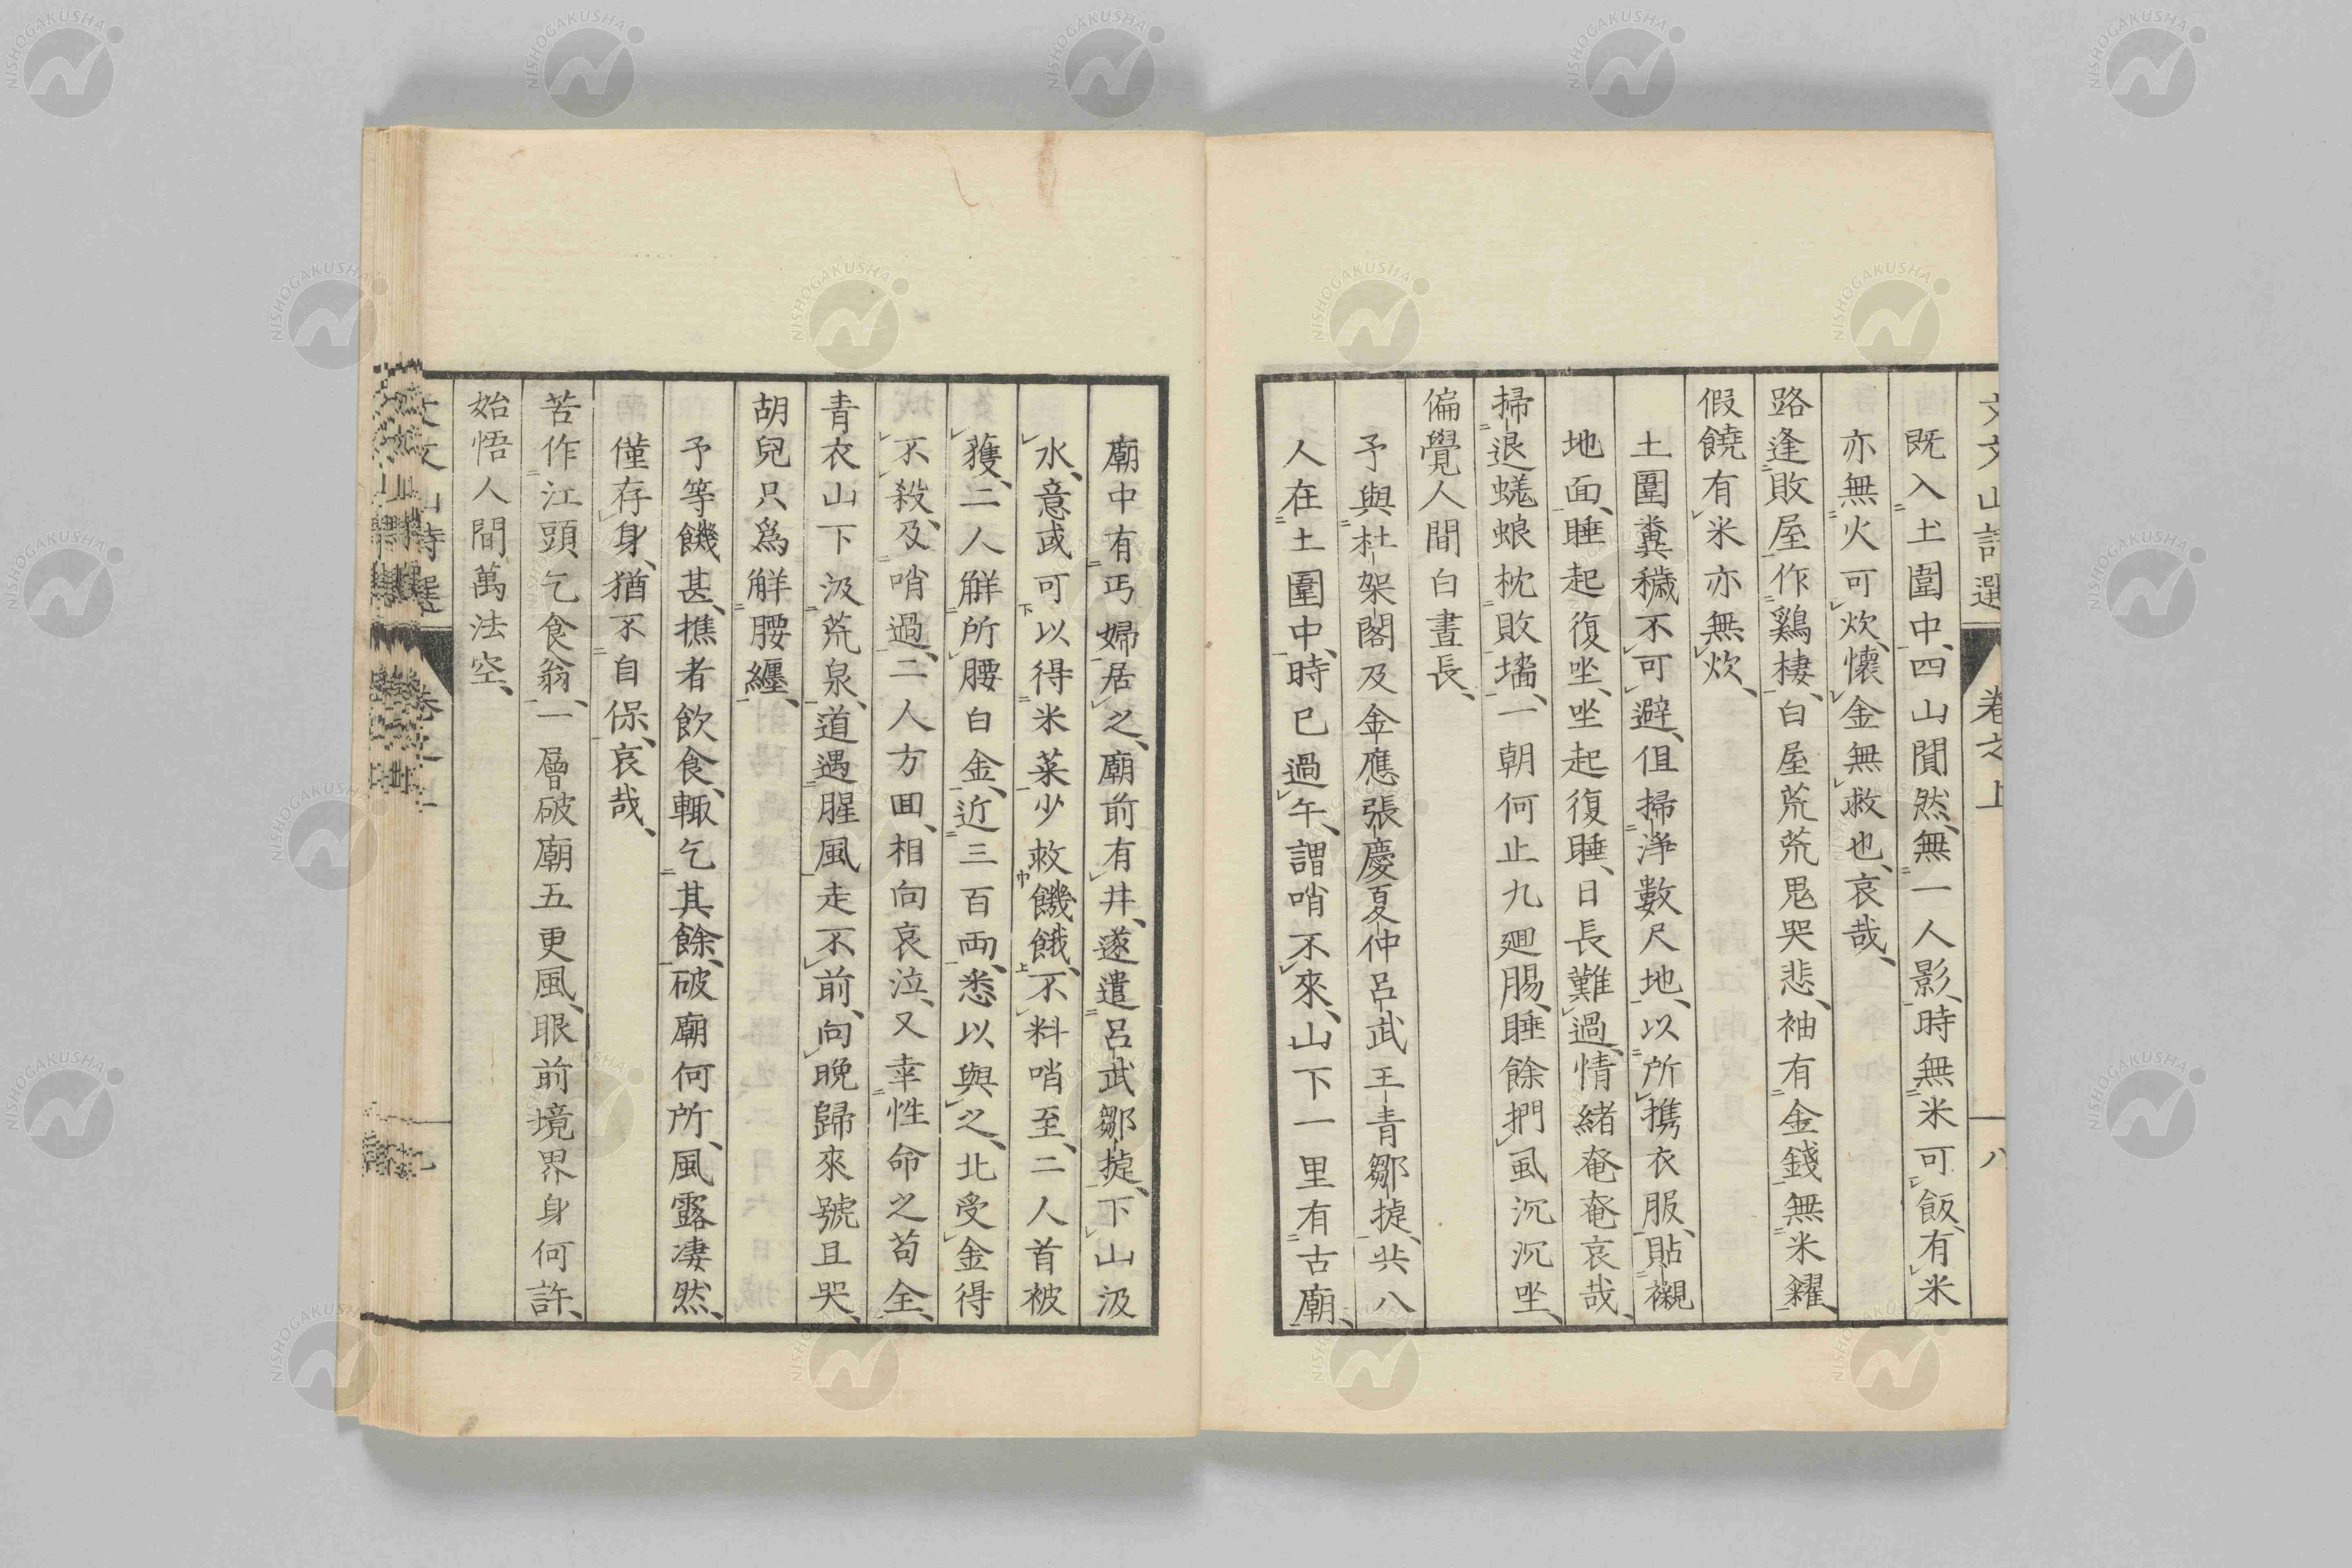 文文山詩選 卷之上 十八
既入土圍中、四山閴然、無一人影、時無米可飯、有米
亦無火可炊、懷金無救也、哀哉、
路逢敗屋作鷄棲、白屋荒荒鬼哭悲、袖有金錢無米糴、
假饒有米亦無炊、
土圍糞穢不可避、但掃淨數尺地、以所携衣服、貼襯
地面、睡起復坐、坐起復睡、日長難過、情緒奄奄哀哉、
掃退蜣蜋枕敗墻、一朝何止九廻腸、睡餘捫虱沉沉坐、
偏覺人間白晝長、
予與杜架閣及金應張慶夏仲呂武王青鄒捷、共八
人在土圍中、時已過午、謂哨不來、山下一里有古廟、
廟中有丐婦居之、廟前有井、遂遣呂武鄒捷、下山汲
水、意或可以得米菜少救饑餓、不料哨至、二人首被
獲、二人解所腰白金、近三百両、悉以與之、北受金得
不殺、及哨過、二人方囬、相向哀泣、又幸性命之苟全、
青衣山下汲荒泉、道遇腥風走不前、向晚歸來號且哭、
胡兒只爲解腰纏、
予等饑甚、樵者飲食、輙乞其餘、破廟何所、風露凄然、
僅存身、猶不自保、哀哉、
苦作江頭乞食翁、一層破廟五更風、眼前境界身何許、
始悟人間萬法空、